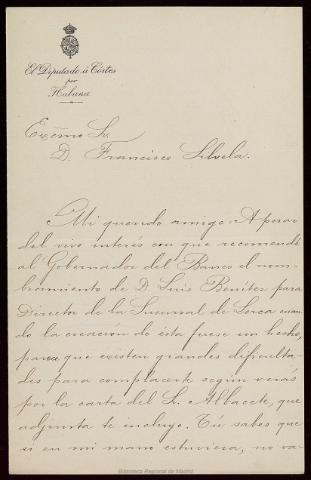 El Diputado á Córtes
por
Habana
Excmo Sr.
D. Francisco Silvela.
Mi querido amigo: A pesar
del vivo interés con que recomendé
al Gobernador del Banco el nom-
bramiento de D. Luis Benítez para
Director de la Sucursal de Lorca cuan-
do la creación de ésta fuese un hecho,
parece que existen grandes dificulta-
des para complacerte según verás
por la carta del Sr. Albacete, que
adjunta te incluyo. Tú sabes que
si en mi mano estuviera, no va-
Biblioteca Regional de Madrid